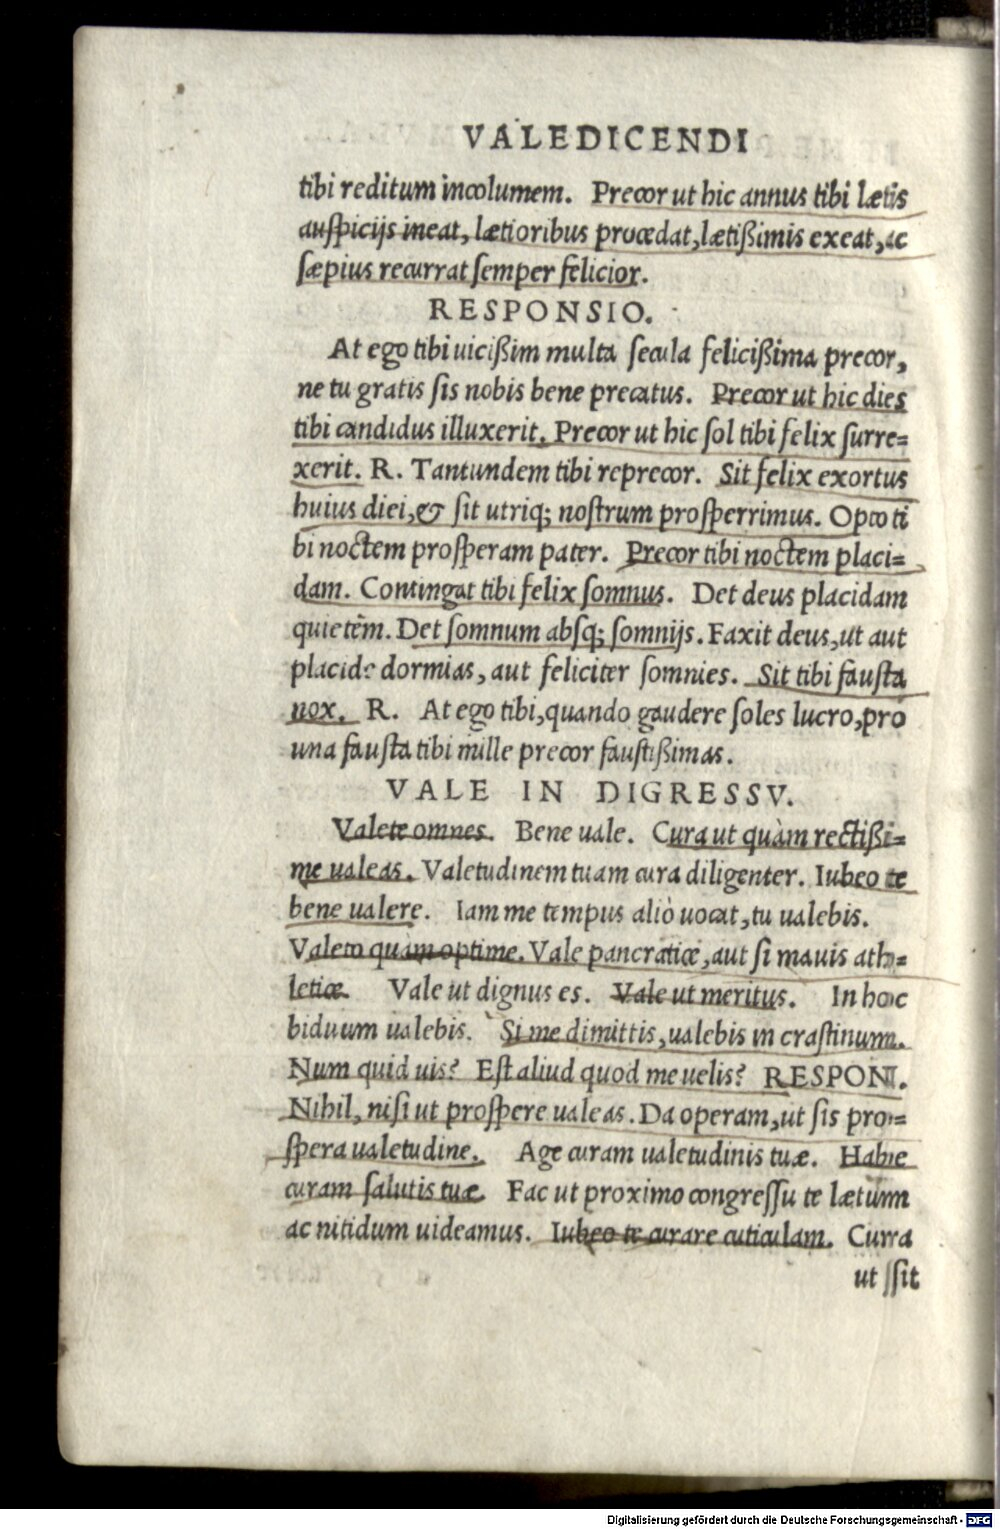 VALEDICENDI
tibi reditum incolumem. Precor ut hic annus tibi lætis
auſpicijs ineat, lætioribus procedat, lætißimis exeat, ac
ſæpius recurrat ſemper felicior.
RESPONSIO.
At ego tibi uicißim multa ſecula felicißima precor,
ne tu gratis ſis nobis bene precatus. Precor ut hic dies
tibi candidus illuxerit. Precor ut hic ſol tibi felix ſurre=
xerit. R. Tantundem tibi reprecor. Sit felix exortus
huius diei, & ſit utriq; noſtrum proſperrimus. Opto ti
bi noctem proſperam pater. Precor tibi noctem placi=
dam. Contingat tibi felix ſomnus. Det deus placidam
quietem. Det ſomnum abſq; ſomnijs. Faxit deus, ut aut
placide dormias, aut feliciter ſomnies. Sit tibi fauſta
nox. R. At ego tibi, quando gaudere ſoles lucro, pro
una fauſta tibi mille precor fauſtißimas.
VALE IN DIGRESSV.
Valete omnes. Bene uale. Cura ut quàm rectißi=
me ualeas. Valetudinem tuam cura diligenter. Iubeo te
bene ualere. Iam me tempus aliò uocat, tu ualebis.
Valeto quàm optime. Vale pancraticæ, aut ſi mauis ath=
leticæ. Vale ut dignus es. Vale ut meritus. In hoc
biduum ualebis. Si me dimittis, ualebis in craſtinum.
Num quid uis? Eſt aliud quod me uelis? RESPON.
Nihil, niſi ut proſpere ualeas. Da operam, ut ſis pro=
ſpera ualetudine. Age curam ualetudinis tuæ. Habe
curam ſalutis tuæ. Fac ut proximo congreſſu te lætum
ac nitidum uideamus. Iubeo te curare cuticulam. Cura
ut ſit
Digitalisierung gefördert durch die Deutsche Forschungsgemeinschaft - DFG